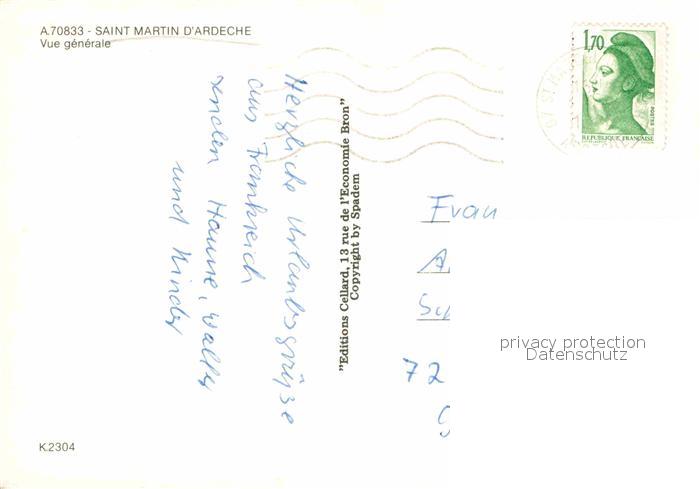 A.70833 - SAINT MARTIN D'ARDECHE
Vue générale
1,70
POSTES
REPUBLIQUE FRANCAISE
Herzliche Urlaubsgrüsse
aus Frankreich
senden Hanne, Walter
und Kinder
"Editions Cellard, 13 rue de l'Economie Bron"
Copyright by Spadem
Frau
A
72
privacy protection
Datenschutz
K.2304